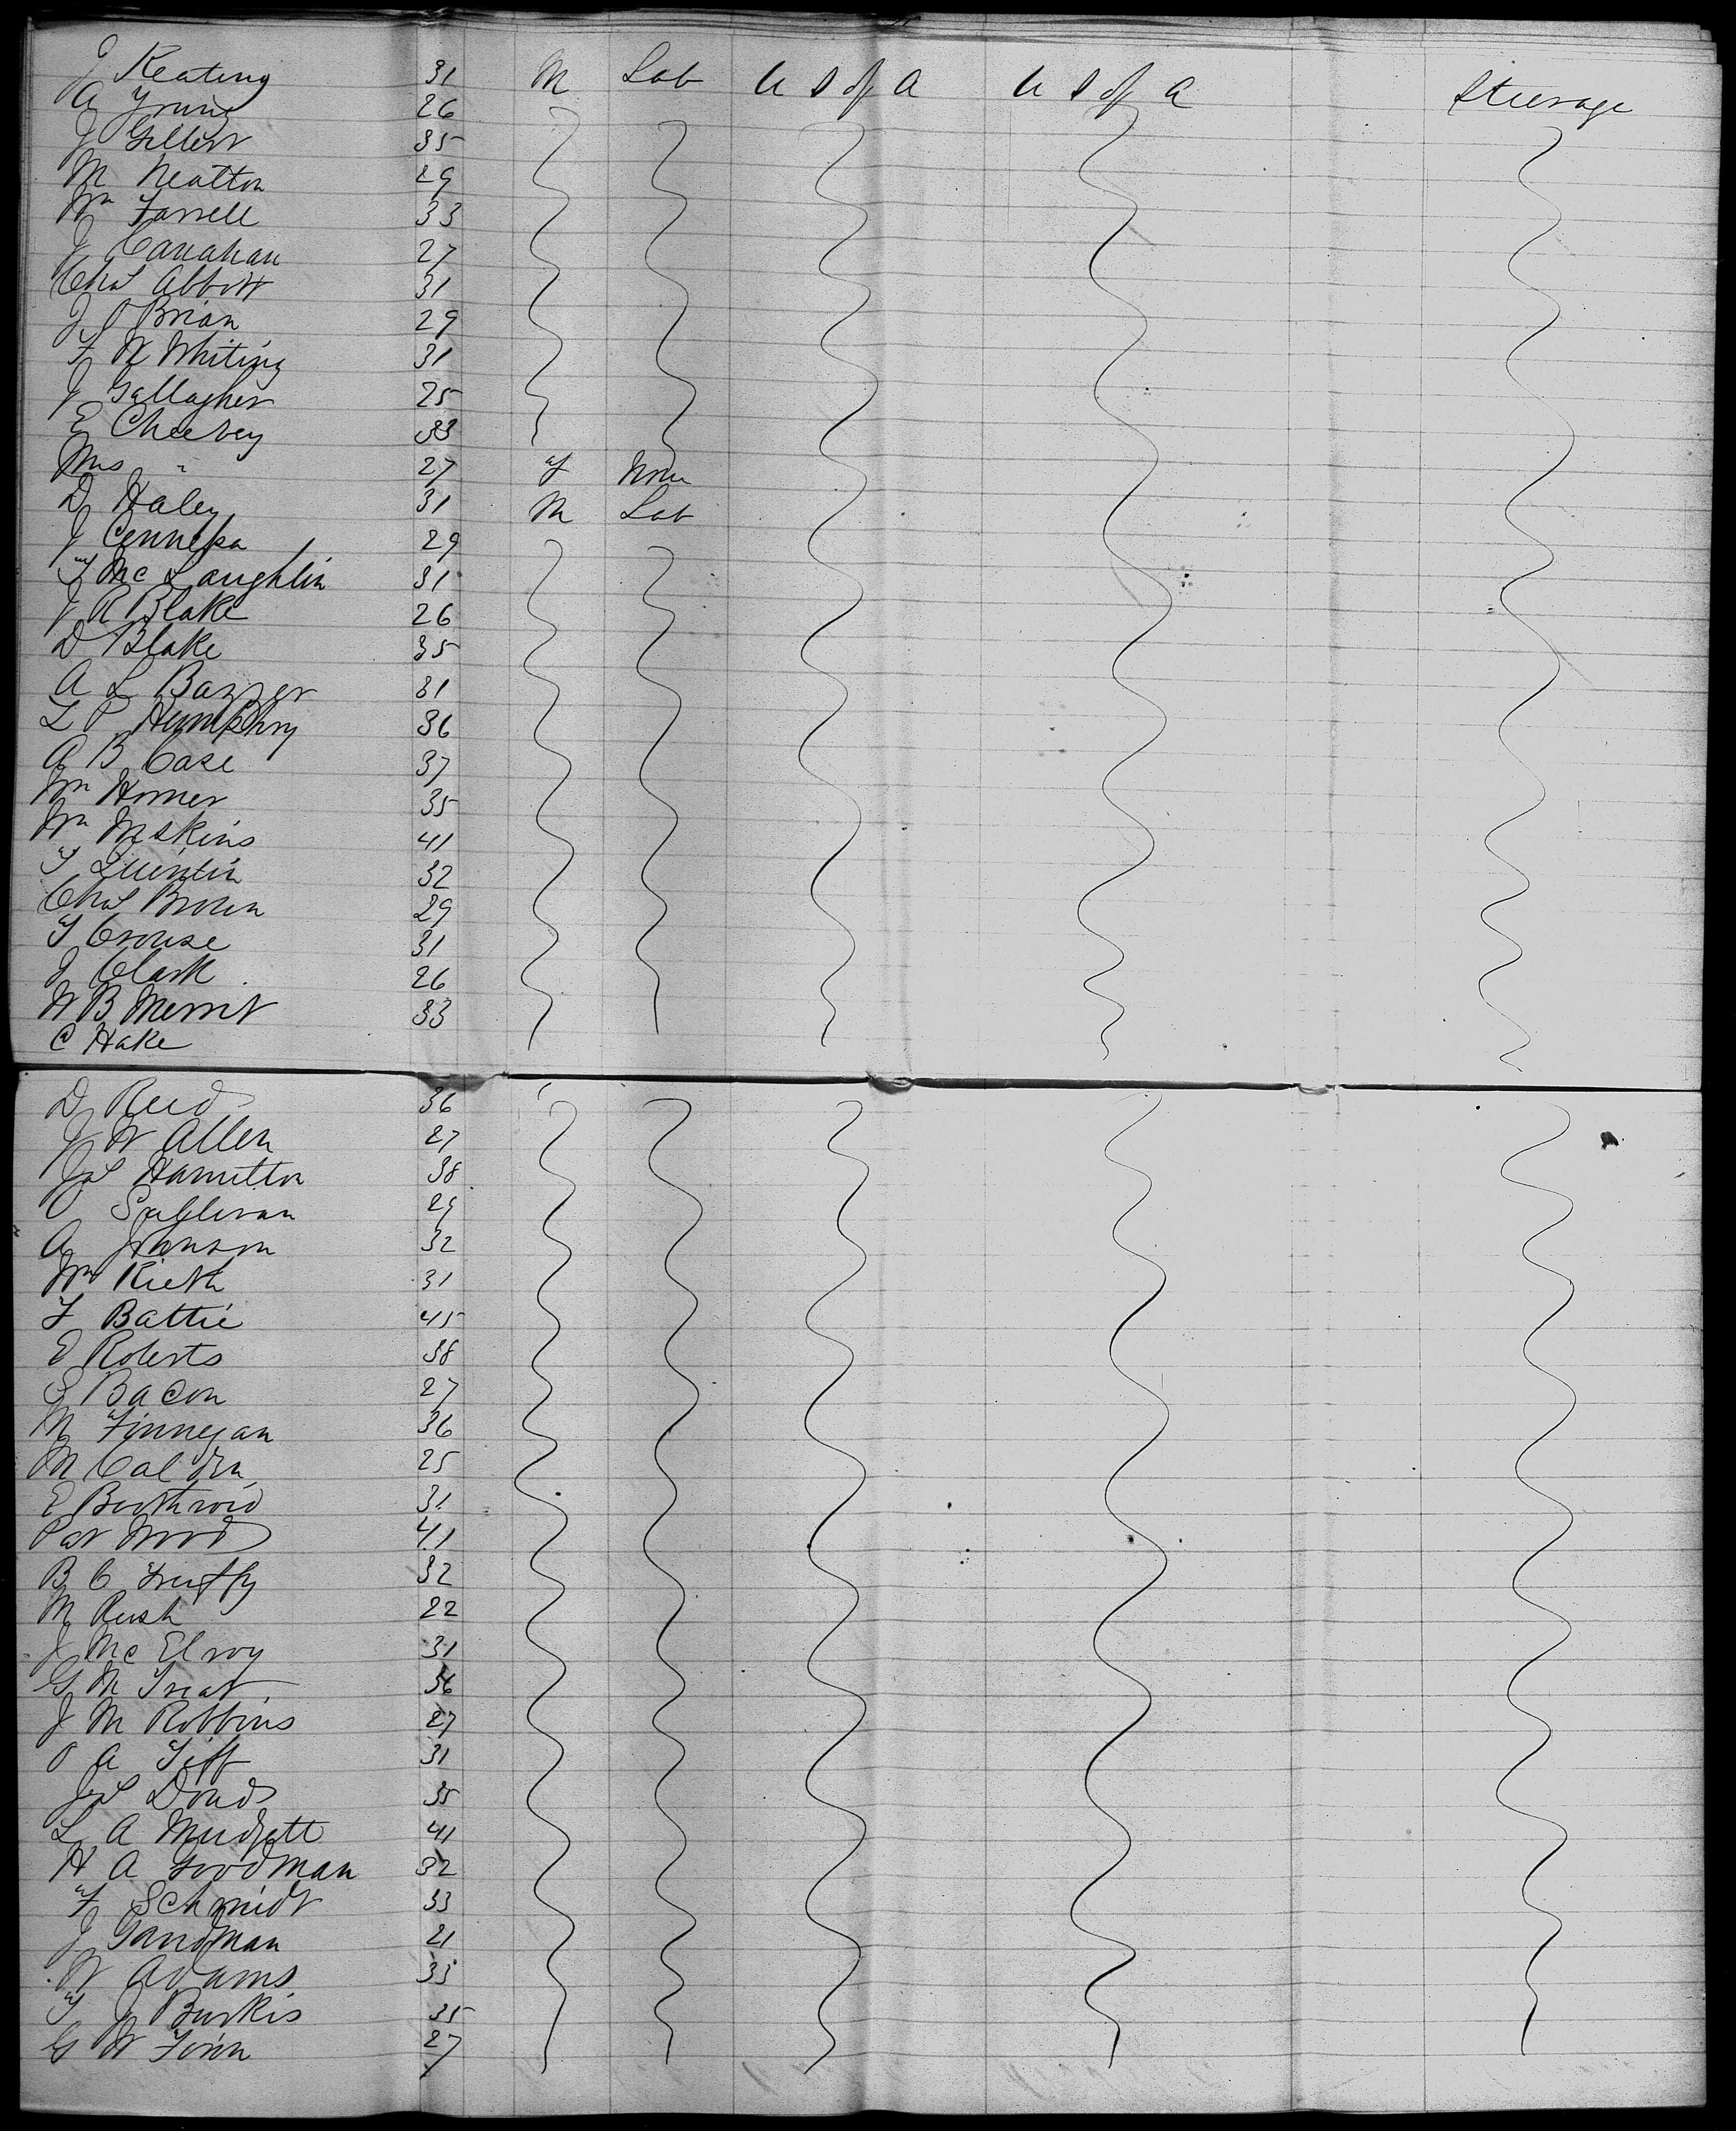 J Keating 31 M Lab U S of A U S of A Steerage
A 26
J 35
M Neatton 29
Wm Farrell 33
J Canahan 27
Chas Abbott 31
J O Brian 29
F W Whiting 31
J Gallagher 25
E Cheevey 33
Mrs " 27 F None
D Haley 31 M Lab
J 29
T Mc Laughlin 31
J R Blake 26
D Blake 35
A L Barger 31
L P Humphry 36
A B Case 37
Wm Horner 35
Wm Meskins 41
T Quintin 32
Chas Brown 29
T Crouse 31
J Clark 26
W B Merrit 33
C Hake
D Reed 36
J W Allen 27
Jas Hamilton 38
O Sullivan 29
A Johnson 32
Wm Kieth 31
F Battie 45
E Roberts 38
S Bacon 27
M Finnegan 36
M 25
E Boothroid 31
Pat Wood 41
B C 32
M Rush 22
J Mc Elroy 31
G M Treat 36
J M Robbins 27
O A Tift 31
Jas Douds 35
L A Mudgett 41
H A Goodman 32
F Schmidt 33
J Sandman 21
W Adams 33
T J Burkis 35
G W 27